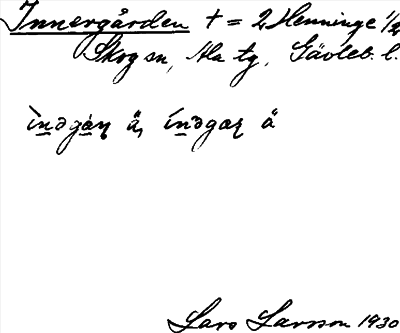 Innergården † = 2 Henninge 1/2
Skog sn, Ala tg, Gävleb. l.
ìnəgàɳ ä, ínəgaɽ ä
Lars Larsson 1930